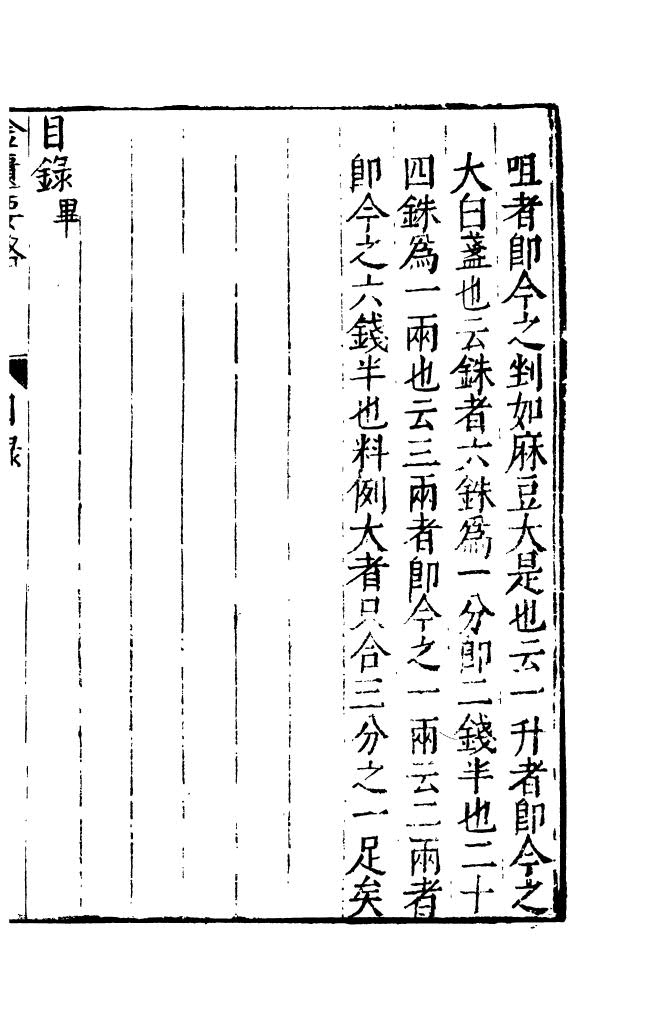 咀者卽今之剉如麻豆大是也云一升者卽今之
大白盞也云銖者六銖爲一分卽二錢半也二十
四銖爲一兩也云三兩者卽今之一兩云二兩者
卽今之六錢半也料例大者只合三分之一足矣
目錄畢
金匱要略 目錄